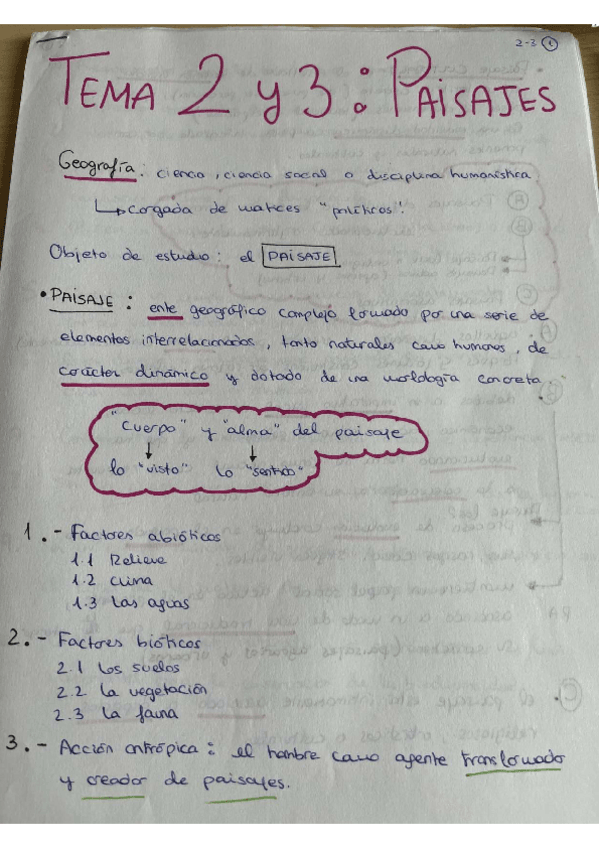 2-3 1
TEMA 2 y 3: PAISAJES
Geografía: ciencia, ciencia social o disciplina humanística
↳ cargada de matices "políticos".
Objeto de estudio: el PAISAJE
• PAISAJE: ente geográfico complejo formado por una serie de
elementos interrelacionados, tanto naturales como humanos, de
carácter dinámico y dotado de una morfología concreta.
"Cuerpo" y "alma" del paisaje
↓ ↓
lo "visto" lo "sentido"
1.- Factores abióticos
1.1 Relieve
1.2 Clima
1.3 Las aguas
2.- Factores bióticos
2.1 Los suelos
2.2 La vegetación
2.3 La fauna
3.- Acción antrópica: el hombre como agente transformador
y creador de paisajes.